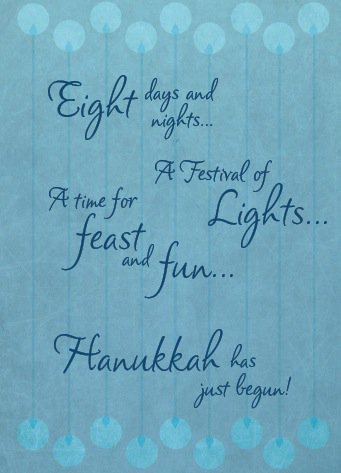 Eight days and
nights...
A Festival of
Lights...
A time for
feast
and fun...
Hanukkah has
just begun!